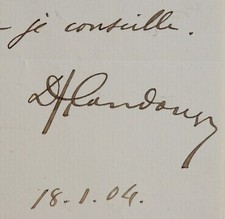 - je conseille.
18.1.04.